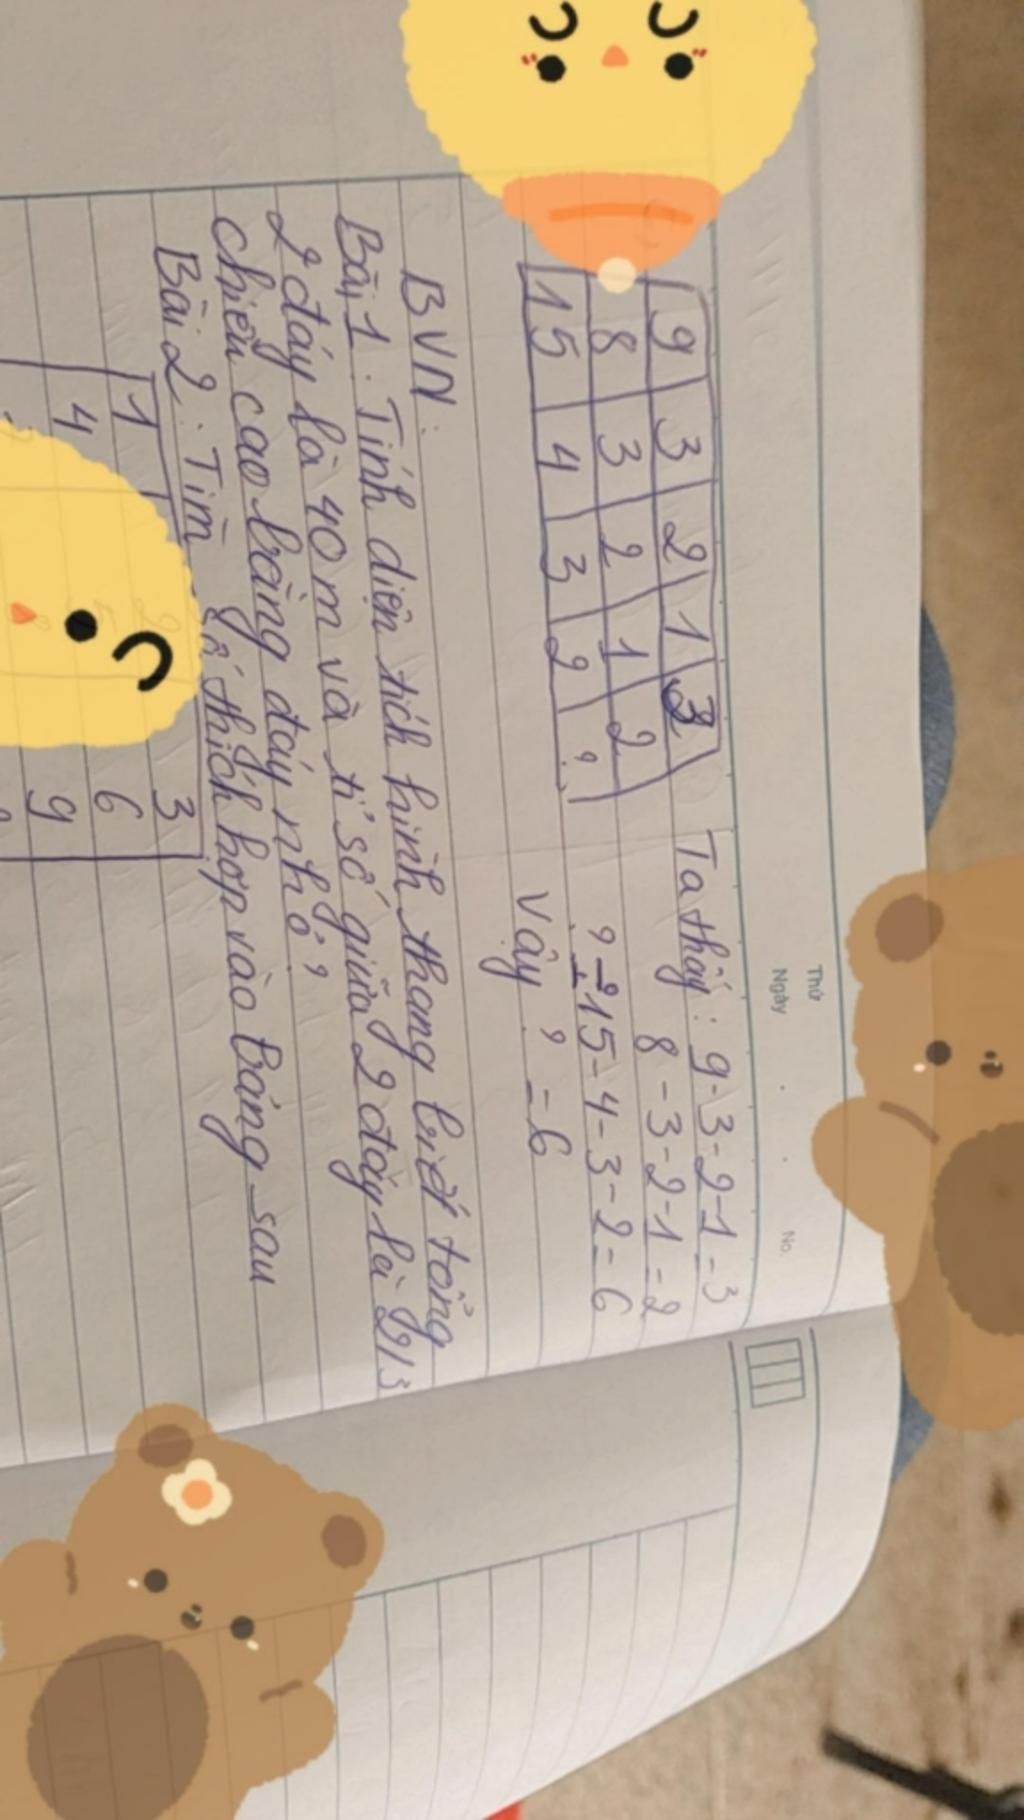 Thứ
Ngày
No.
9 3 2 1 3
8 3 2 1 2
15 4 3 2 ?
Ta thấy: 9-3-2-1=3
8-3-2-1=2
15-4-3-2=6
Vậy ? = 6
BVN:
Bài 1: Tính diện tích hình thang biết tổng
2 đáy là 40m và tỉ số giữa 2 đáy là 2/3
chiều cao bằng đáy nhỏ?
Bài 2: Tìm số thích hợp vào bảng sau
1 3
4 6
9